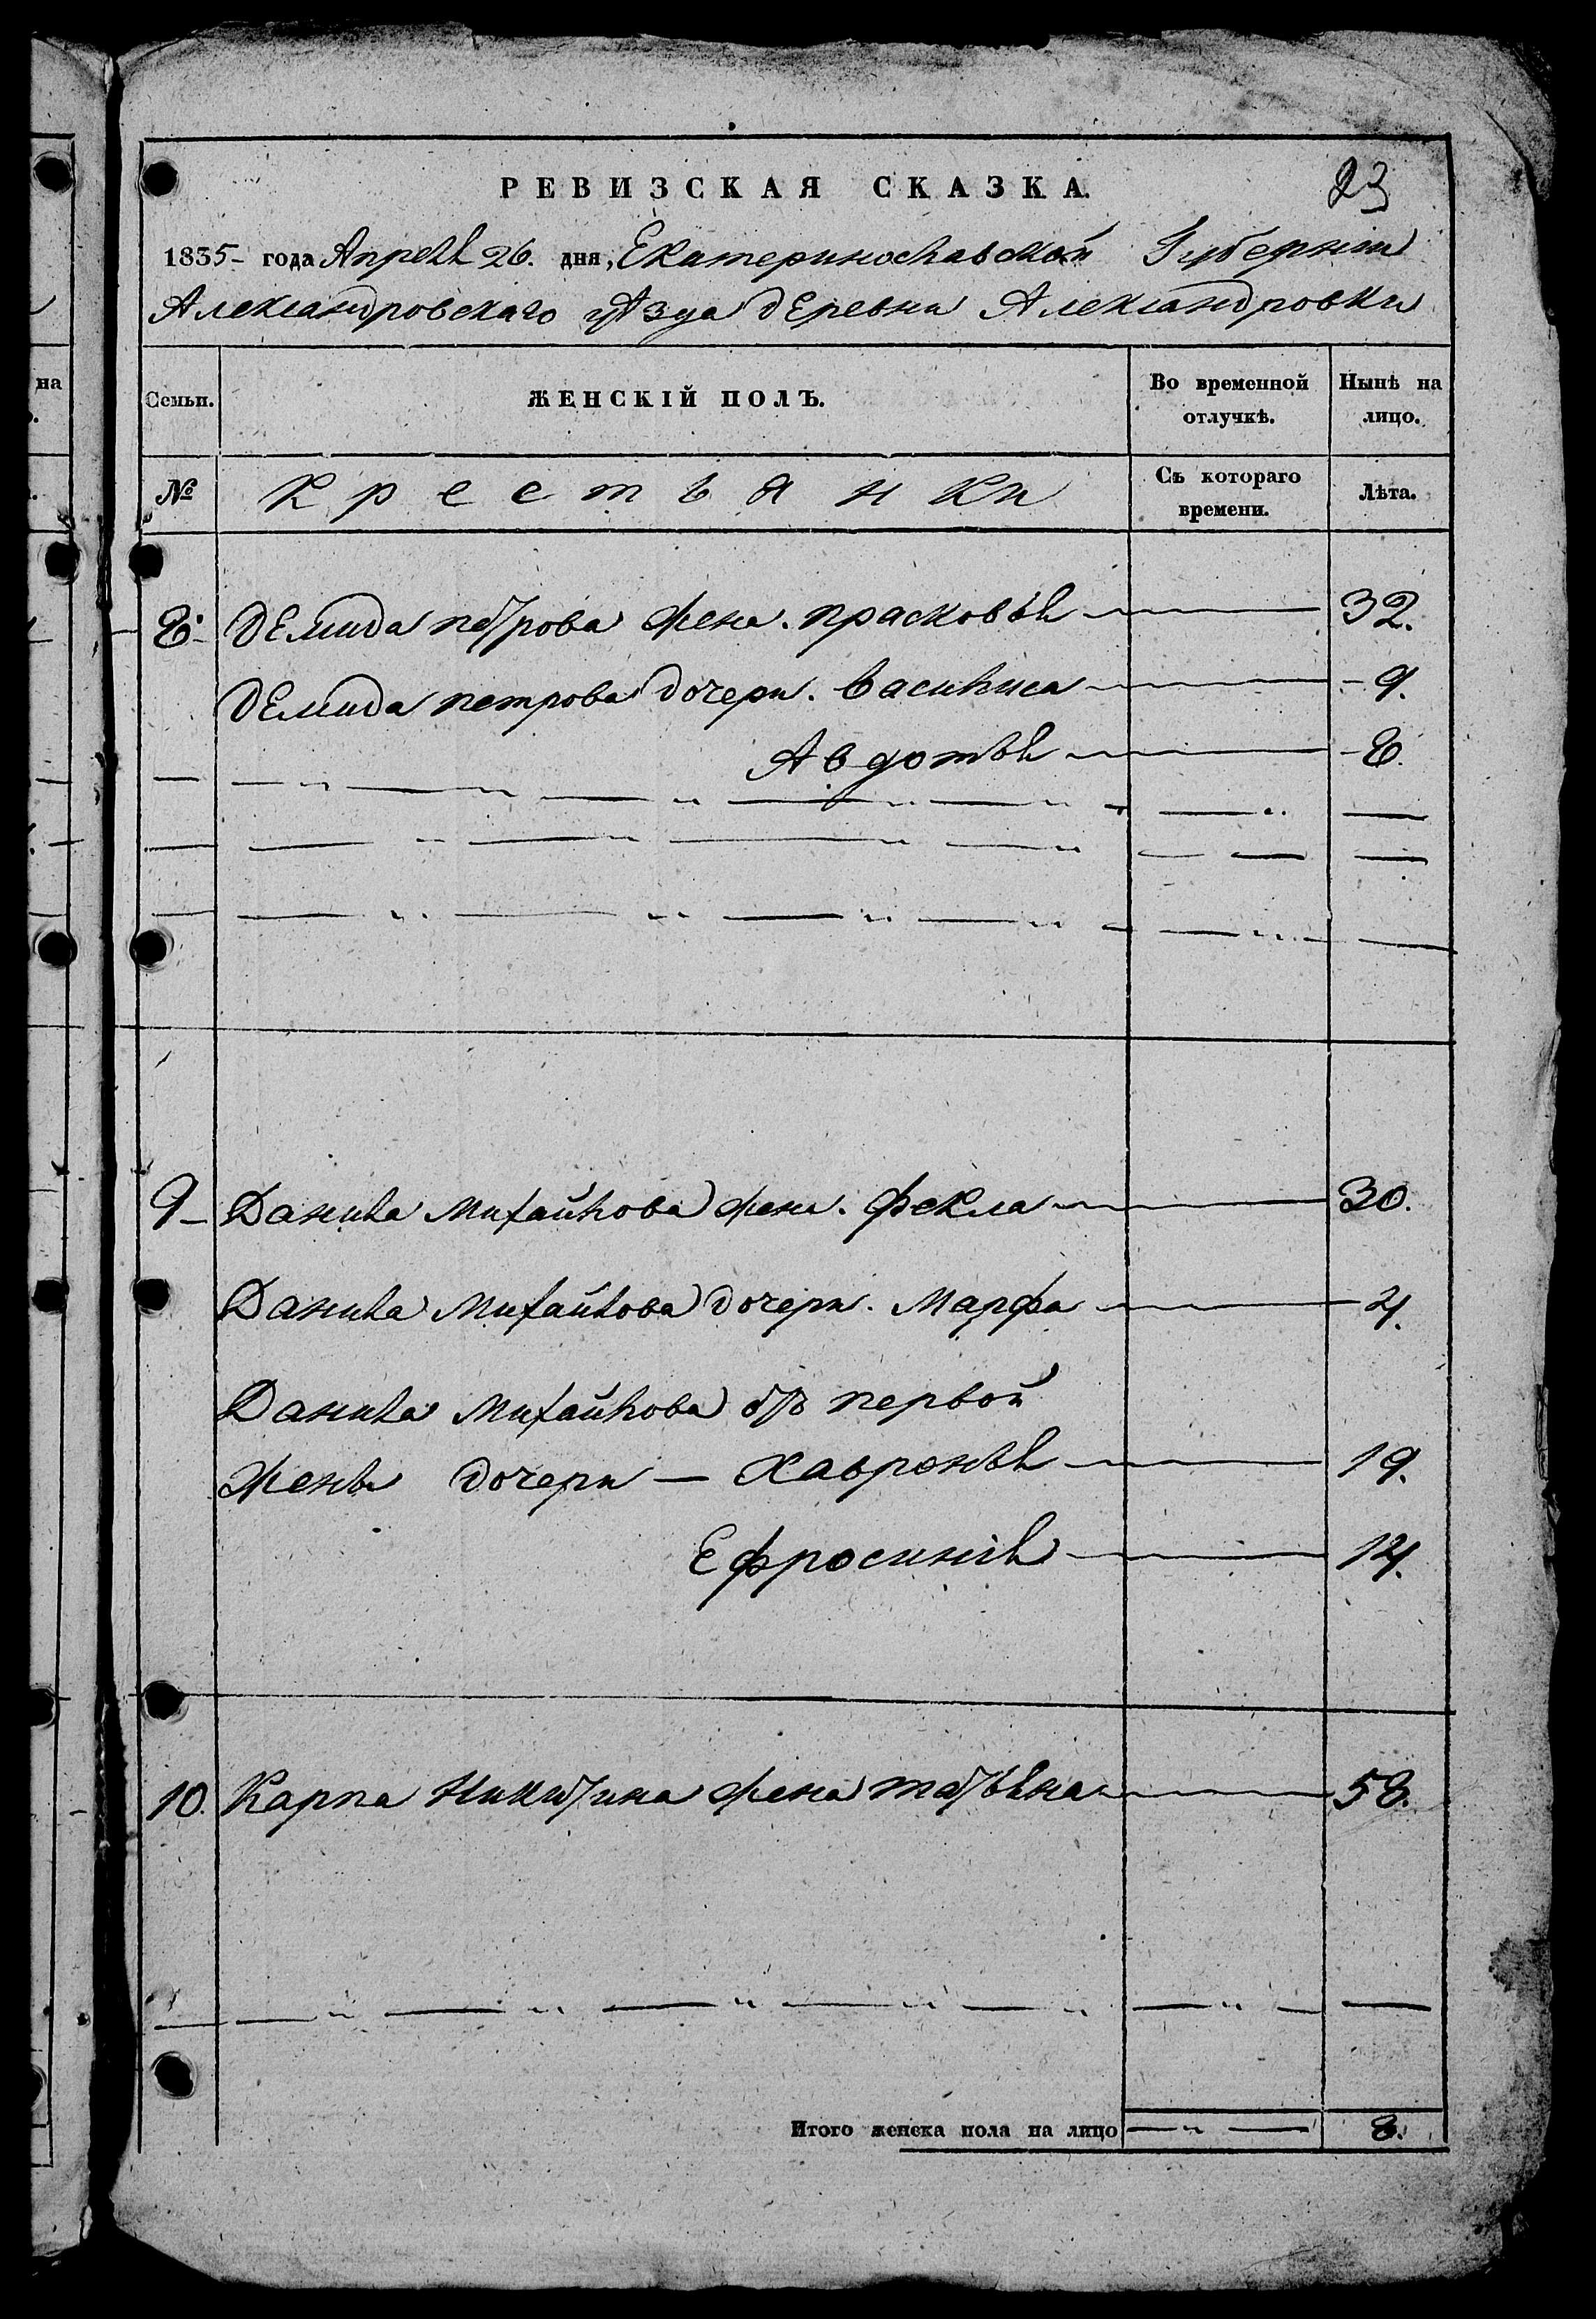 на
23
РЕВИЗСКАЯ СКАЗКА.
1835- года Апреля 26. дня, Екатеринославской Губерніи
Александровскаго уѣзда деревни Александровки
Семьи.
ЖЕНСКІЙ ПОЛЪ.
Во временной отлучкѣ.
Нынѣ на лицо.
№
Крестьянки
Съ котораго времени.
Лѣта.
8. Демида петрова жена. прасковья 32.
Демида петрова дочери. Василиса 9.
Авдотья 8.
9 Данила Михайлова жена. Фекла 30.
Данила Михайлова дочери. Марфа 4.
Данила Михайлова отъ первой
жены дочери — Хавронья 19.
Ефросинія 14.
10. Карпа Никитина жена татьяна 58.
Итого женска пола на лицо 8.